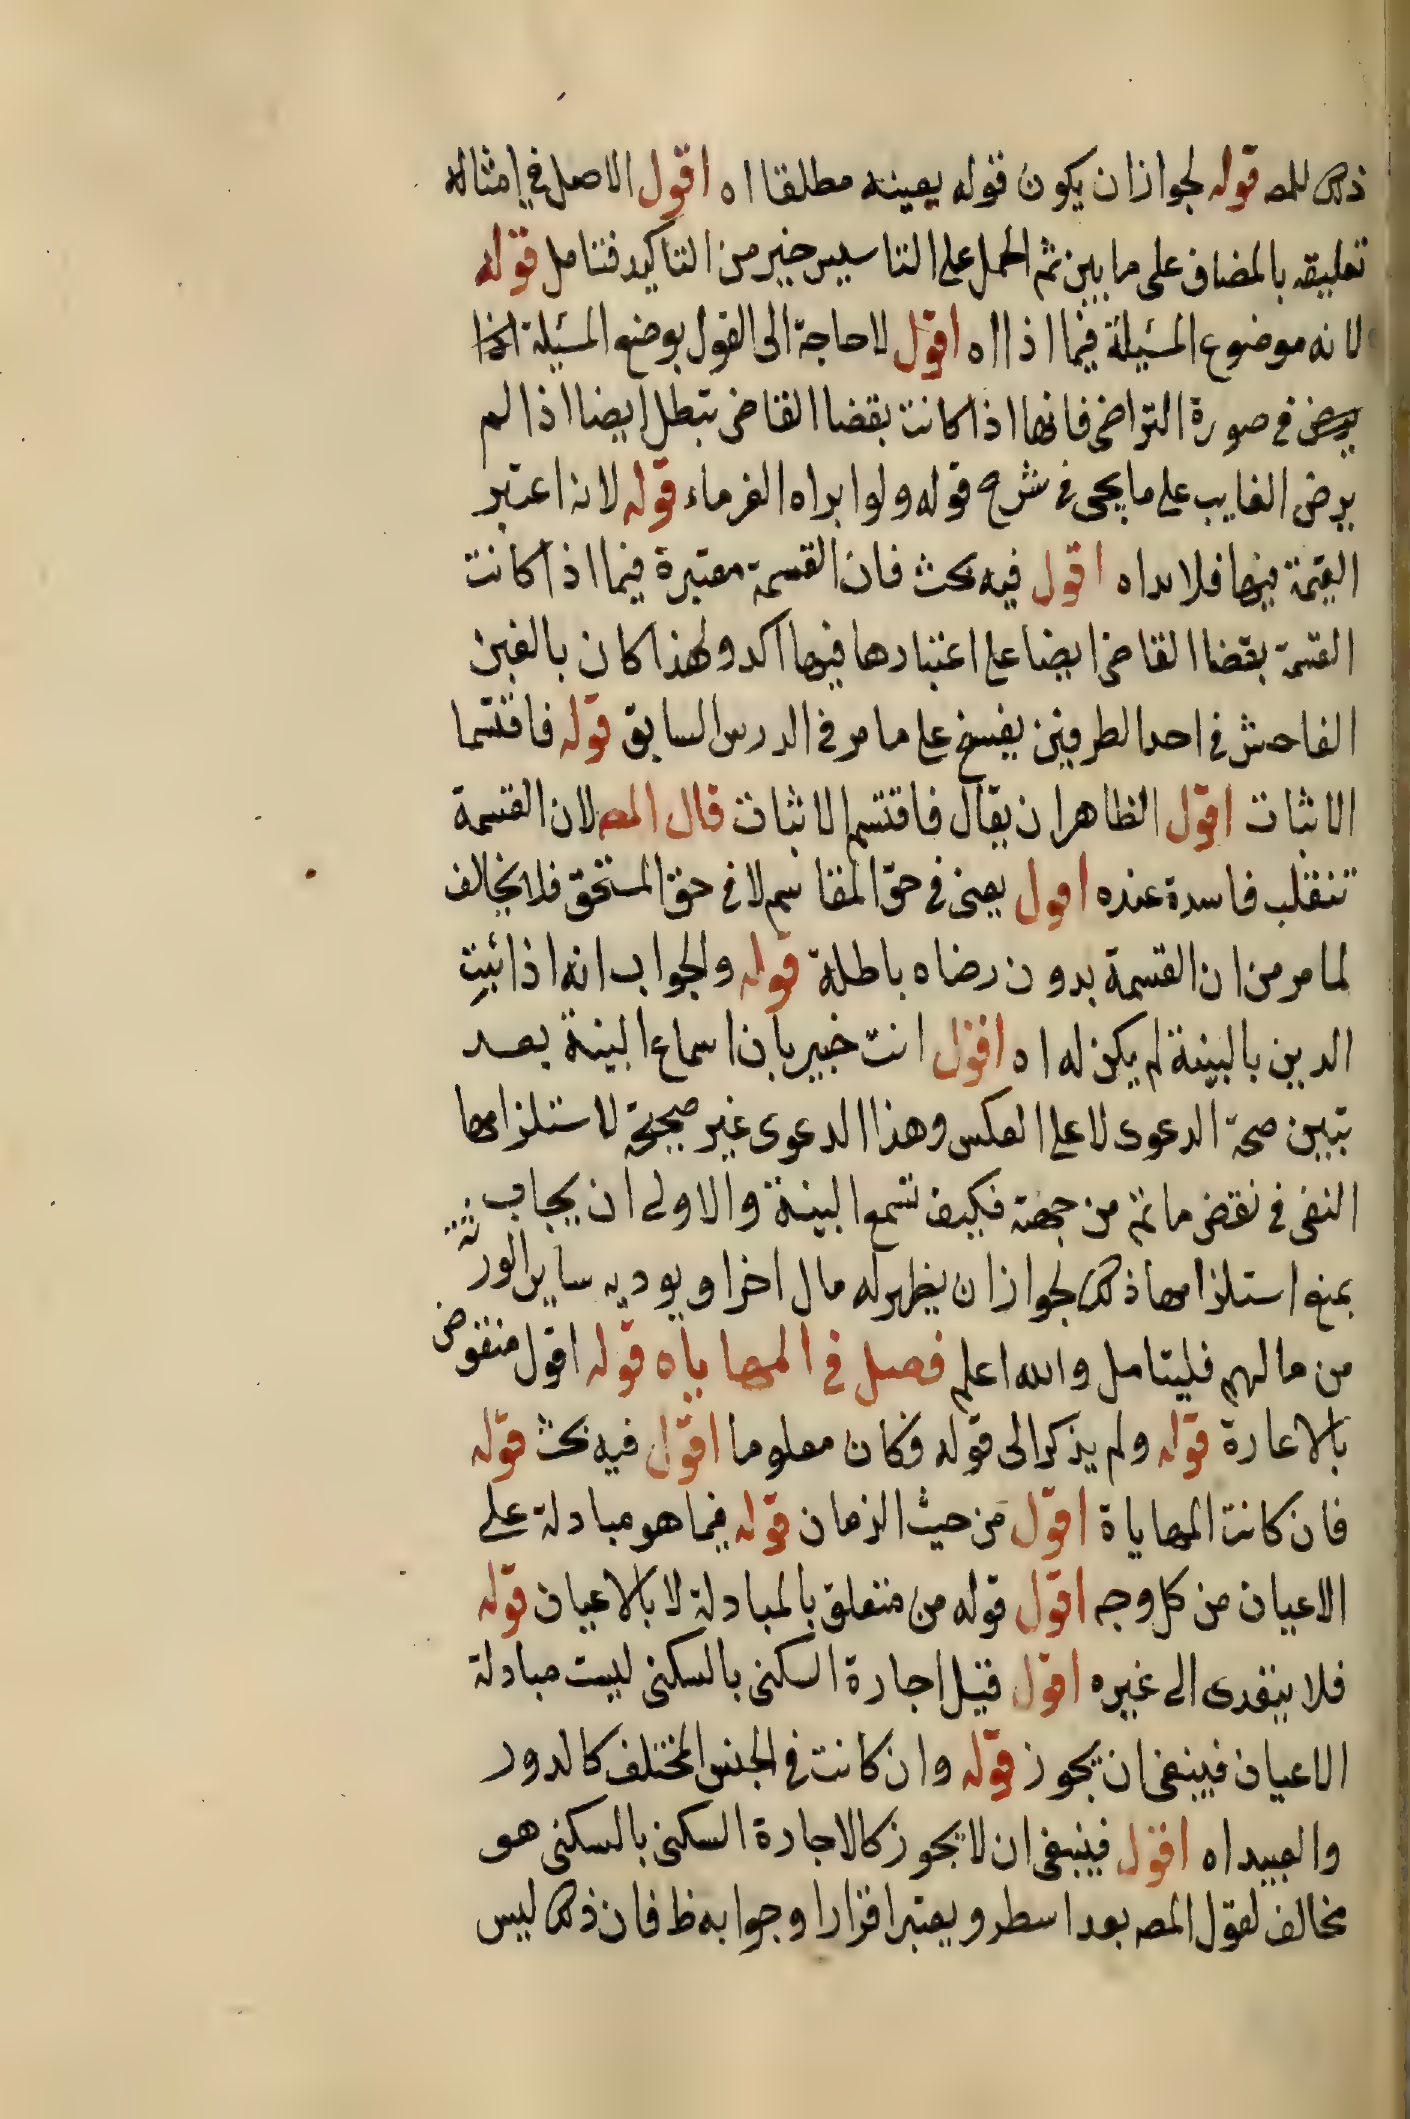 ذلك للمص قوله لجواز ان يكون قوله بعينه مطلقا اه اقول الاصل في امثاله
تعليقه بالمضاف على ما بين ثم الحمل على التاسيس خير من التاكيد فتامل قوله
لانه موضوع المسئلة فيما اذا اه اقول لا حاجة الى القول بوضع المسئلة اذا
في صورة التراضى فانها اذا كانت بقضا القاضى تبطل ايضا اذا لم
يرض الغايب على ما يجى في شرح قوله ولو ابراه الغرماء قوله لانه اعتبر
القيمة فيها فلابد اه اقول فيه بحث فان القسمة معتبرة فيما اذا كانت
القسمة بقضا القاضى ايضا على اعتبارها فيها اكد ولهذا كان بالغبن
الفاحش في احد الطرفين يفسخ على ما مر في الدرس السابق قوله فاقتسما
الاثبات اقول الظاهر ان يقال فاقتسم الاثبات قال المص لان القسمة
تنقلب فاسدة عنده اقول يعنى في حق المقاسم لا في حق المستحق فلا يخالف
لما مر من ان القسمة بدون رضاه باطلة قوله والجواب انه اذا ثبت
الدين بالبينة لم يكن له اه اقول انت خبير بان اسماع البينة بعد
تبين صحة الدعوى لا على العكس وهذا الدعوى غير صحيحة لاستلزامها
النفى في نقض ما تم من جهته فكيف تسمع البينة والاولى ان يجاب
بمنع استلزامها ذلك لجواز ان يظهر له مال اخر او يوديه ساير الورثة
من مالهم فليتامل والله اعلم فصل في المهاياه قوله اقول منقوض
بالاعارة قوله ولم يذكر الى قوله فكان معلوما اقول فيه بحث قوله
فان كانت المهاياة اقول من حيث الزمان قوله فيما هو مبادلة على
الاعيان من كل وجه اقول قوله من متعلق بالمبادلة لا بالاعيان قوله
فلا يتعدى الى غيره اقول قيل اجارة السكنى بالسكنى ليست مبادلة
الاعيان فينبغى ان يجوز قوله وان كانت في الجنس المختلف كالدور
والعبيد اه اقول فينبغى ان لا يجوز كالاجارة السكنى بالسكنى هو
مخالف لقول المص بعد اسطر ويعتبر اقرارا وجوابه ظ فان ذلك ليس